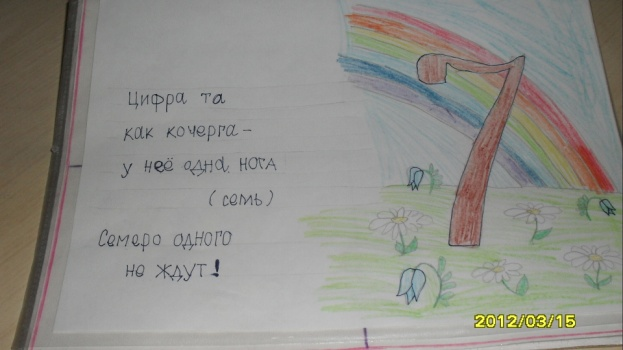 Цифра та
как кочерга –
у неё одна нога
(семь)
Семеро одного
не ждут!
7
2012/03/15